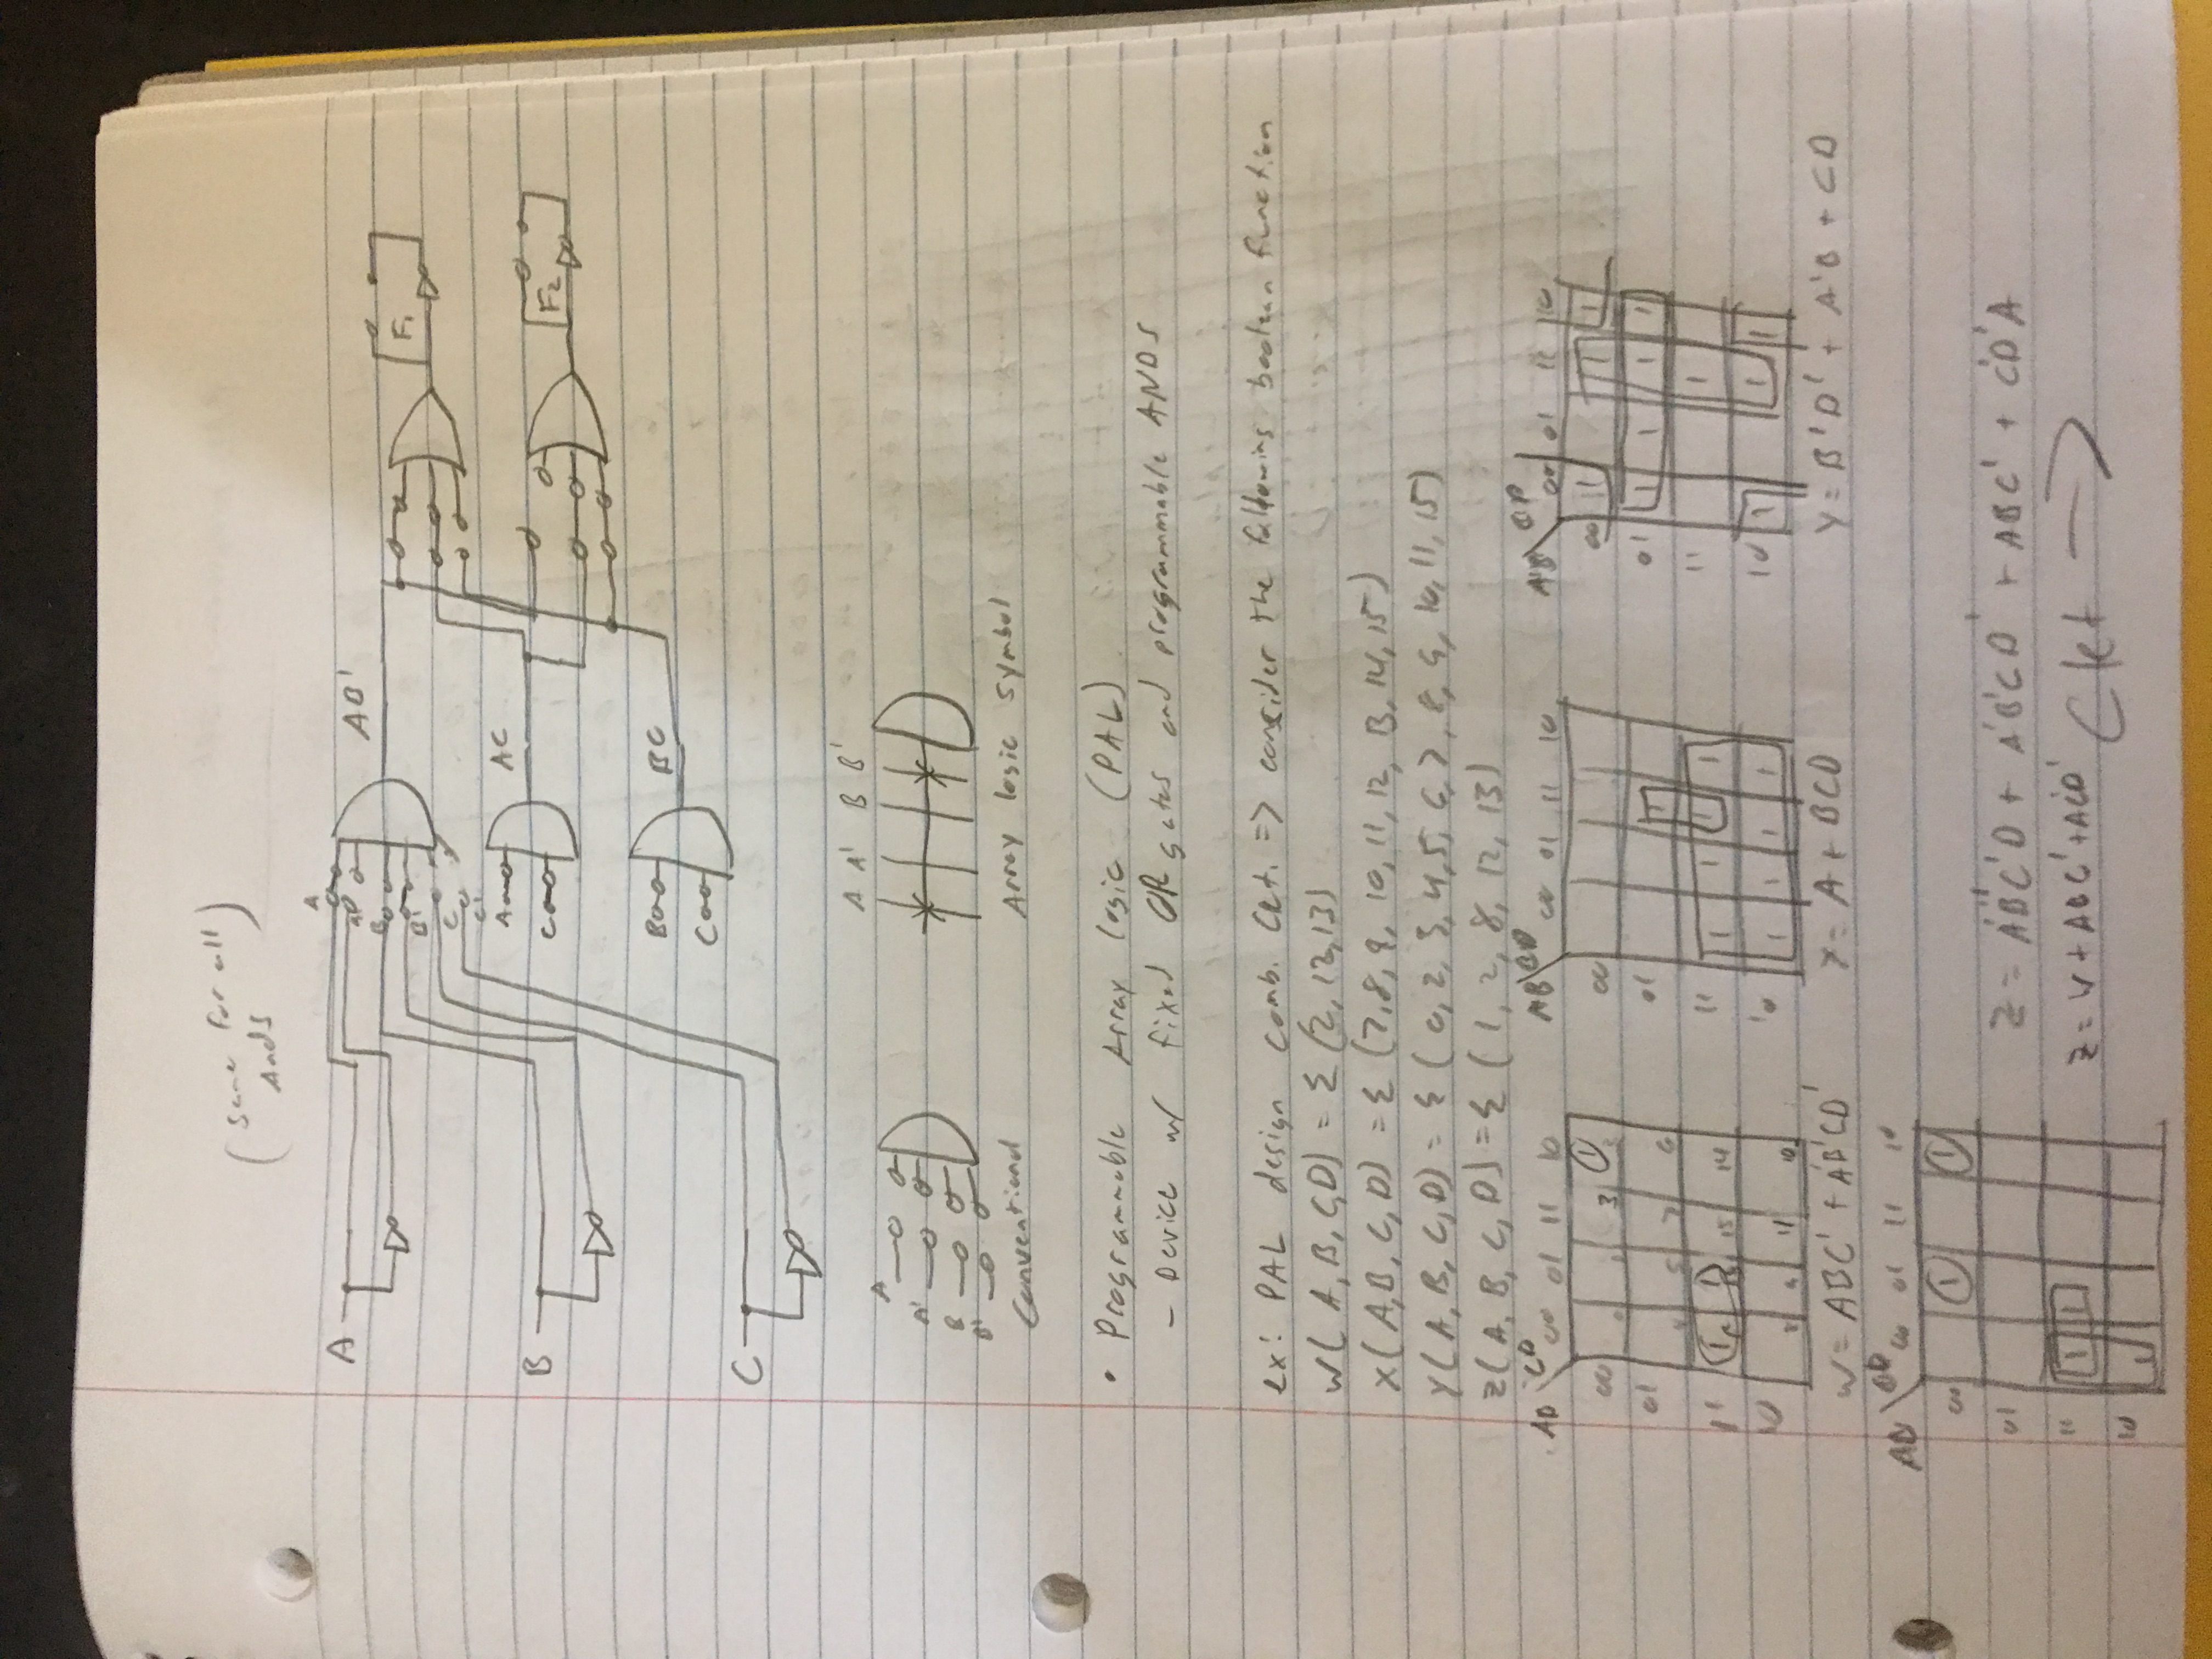 (same for all
Ands)
A
A
B
B'
C
C'
AB'
F1
A
C
AC
B
F2
B
C
BC
C
A A' B B'
A
A'
B
B'
Conventional
Array logic symbol
• Programmable Array logic (PAL)
- Device w/ fixed OR gates and programmable ANDS
ex: PAL design comb. Ckt. => consider the following boolean function
W(A,B,C,D) = Σ (2,12,13)
X(A,B,C,D) = Σ (7,8,9,10,11,12,13,14,15)
Y(A,B,C,D) = Σ (0,2,3,4,5,6,7,8,9,10,11,15)
Z(A,B,C,D) = Σ (1,2,8,12,13)
AB CD 00 01 11 10
00 1 3
01 4 5 7 6
11 1 1 13 15 14
10 8 9 11 10
AB CD 00 01 11 10
00
01 1
11 1 1 1 1
10 1 1 1 1
AB CD 00 01 11 10
00 1 1 1
01 1 1 1 1
11 1
10 1 1 1
W = ABC' + A'B'CD'
X = A + BCD
Y = B'D' + A'B + CD
AB CD 00 01 11 10
00 1 1
01
11 1 1
10 1
Z = A'B'C'D + A'B'CD' + ABC' + C'D'A
Z = W + ABC' + AC'D' Ckt →